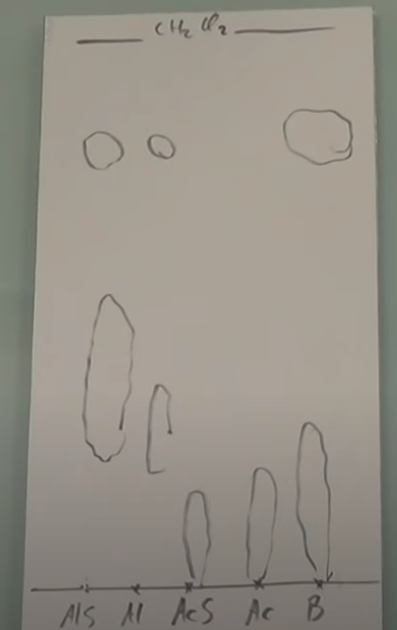 CH2Cl2
AlS Al AcS Ac B